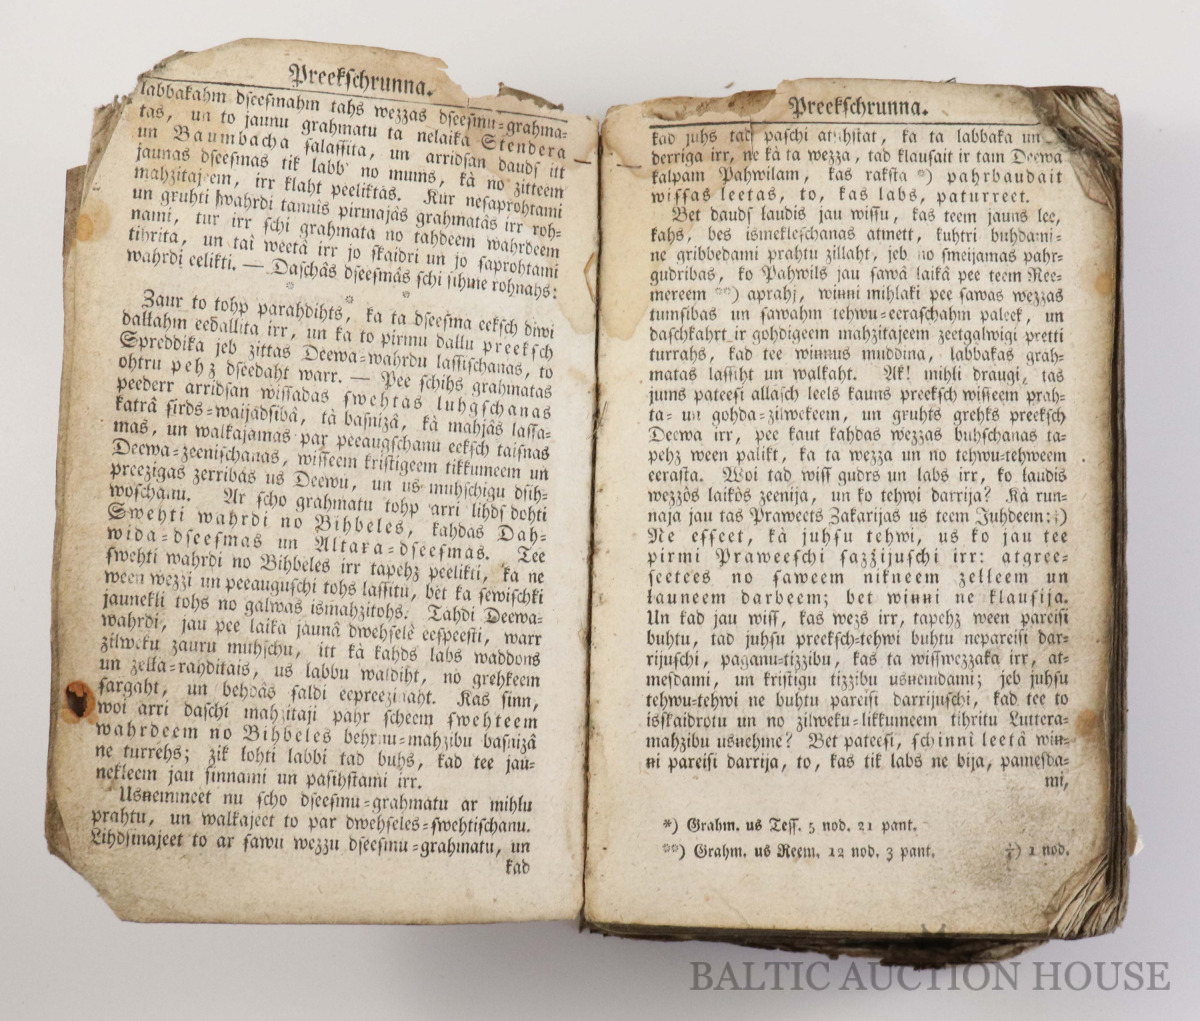 Preekſchrunna.
labbakahm dſeeſmahm tahs wezzas dſeeſmu-grahma-
tas, un to jaunu grahmatu ta nelaika Stendera
un Baumbacha ſalaſſita, un arridſan dauds itt
jaunas dſeeſmas tik labb' no mums, kà no zitteem
mahzitajeem, irr klaht peeliktas. Kur neſaprohtami
un gruhti wahrdi tannîs pirmajâs grahmatâs irr roh-
nami, tur irr ſchi grahmata no tahdeem wahrdeem
tihrita, un tai weetâ irr jo ſkaidri un jo ſaprohtami
wahrdi eelikti. — Daſchâs dſeeſmâs ſchi ſihme rohnahs:
* * *
Zaur to tohp parahdihts, ka ta dſeeſma eekſch diwi
dallahm eedallita irr, un ka to pirmu dallu preekſch
Spreddika jeb zittas Deewa-wahrdu laſſiſchanas, to
ohtru pehz dſeedaht warr. — Pee ſchihs grahmatas
peederr arridſan wiſſadas ſwehtas luhgſchanas
katrâ ſirds-waijadſibâ, tà baſnizâ, kà mahjâs laſſa-
mas, un walkajamas par peeaugſchanu eekſch taiſnas
Deewa-zeeniſchanas, wiſſeem kriſtigeem tikkumeem un
preezigas zerribas us Deewu, un us muhſchigu dſih-
woſchanu. Ar ſcho grahmatu tohp arri lihds dohti
Swehti wahrdi no Bihbeles, kahdas Dah-
wida-dſeeſmas un Altara-dſeeſmas. Tee
ſwehti wahrdi no Bihbeles irr tapehz peelikti, ka ne
ween wezzi un peeauguſchi tohs laſſitu, bet ka ſewiſchki
jaunekli tohs no galwas ismahzitohs. Tahdi Deewa-
wahrdi, jau pee laika jaunâ dwehſelè eeſpeeſti, warr
zilweku zauru muhſchu, itt kà kahds labs waddons
un zella-rahditais, us labbu waldiht, no grehkeem
ſargaht, un behdâs ſaldi eepreezinaht. Kas ſinn,
woi arri daſchi mahzitaji pahr ſcheem ſwehteem
wahrdeem no Bihbeles behrnu-mahzibu baſnizâ
ne turrehs; zik lohti labbi tad buhs, kad tee jau-
nekleem jau ſinnami un paſihſtami irr.
Usnemmeet nu ſcho dſeeſmu-grahmatu ar mihlu
prahtu, un walkajeet to par dwehſeles-ſwehtiſchanu.
Lihdſinajeet to ar ſawu wezzu dſeeſmu-grahmatu, un
kad
Preekſchrunna.
kad juhs tad paſchi atſihſtat, ka ta labbaka un
derriga irr, ne kà ta wezza, tad klauſait ir tam Deewa
kalpam Pahwilam, kas rakſta *) pahrbaudait
wiſſas leetas, to, kas labs, paturreet.
Bet dauds laudis jau wiſſu, kas teem jauns lee,
kahs, bes ismekleſchanas atmett, kuhtri buhdami-
ne gribbedami prahtu zillaht, jeb no ſmeijamas pahr-
gudribas, ko Pahwils jau ſawâ laikâ pee teem Ree-
mereem **) aprahj, winni mihlaki pee ſawas wezzas
tumſibas un ſawahm tehwu-eeraſchahm paleek, un
daſchkahrt ir gohdigeem mahzitajeem zeetgalwigi pretti
turrahs, kad tee winnus muddina, labbakas grah-
matas laſſiht un walkaht. Ak! mihli draugi, tas
jums pateeſi allaſch leels kauns preekſch wiſſeem prah-
ta- un gohda-zilwekeem, un gruhts grehks preekſch
Deewa irr, pee kaut kahdas wezzas buhſchanas ta-
pehz ween palikt, ka ta wezza un no tehwu-tehweem
eeraſta. Woi tad wiſſ gudrs un labs irr, ko laudis
wezzôs laikôs zeenija, un ko tehwi darrija? Kà run-
naja jau tas Praweets Zakarijas us teem Juhdeem:‡)
Ne eſſeet, kà juhſu tehwi, us ko jau tee
pirmi Praweeſchi ſazzijuſchi irr: atgree-
ſeetees no ſaweem nikneem zelleem un
launeem darbeem; bet winni ne klauſija.
Un kad jau wiſſ, kas wezs irr, tapehz ween pareiſi
buhtu, tad juhſu preekſch-tehwi buhtu nepareiſi dar-
rijuſchi, paganu-tizzibu, kas ta wiſſwezzaka irr, at-
meſdami, un kriſtigu tizzibu usnemdami; jeb juhſu
tehwu-tehwi ne buhtu pareiſi darrijuſchi, kad tee to
isſkaidrotu un no zilweku-likkumeem tihritu Luttera-
mahzibu usnehme? Bet pateeſi, ſchinnî leetâ win-
ni pareiſi darrija, to, kas tik labs ne bija, pameſda-
mi,
*) Grahm. us Teſſ. 5 nod. 21 pant.
**) Grahm. us Reem. 12 nod. 3 pant. ‡) 1 nod.
BALTIC AUCTION HOUSE